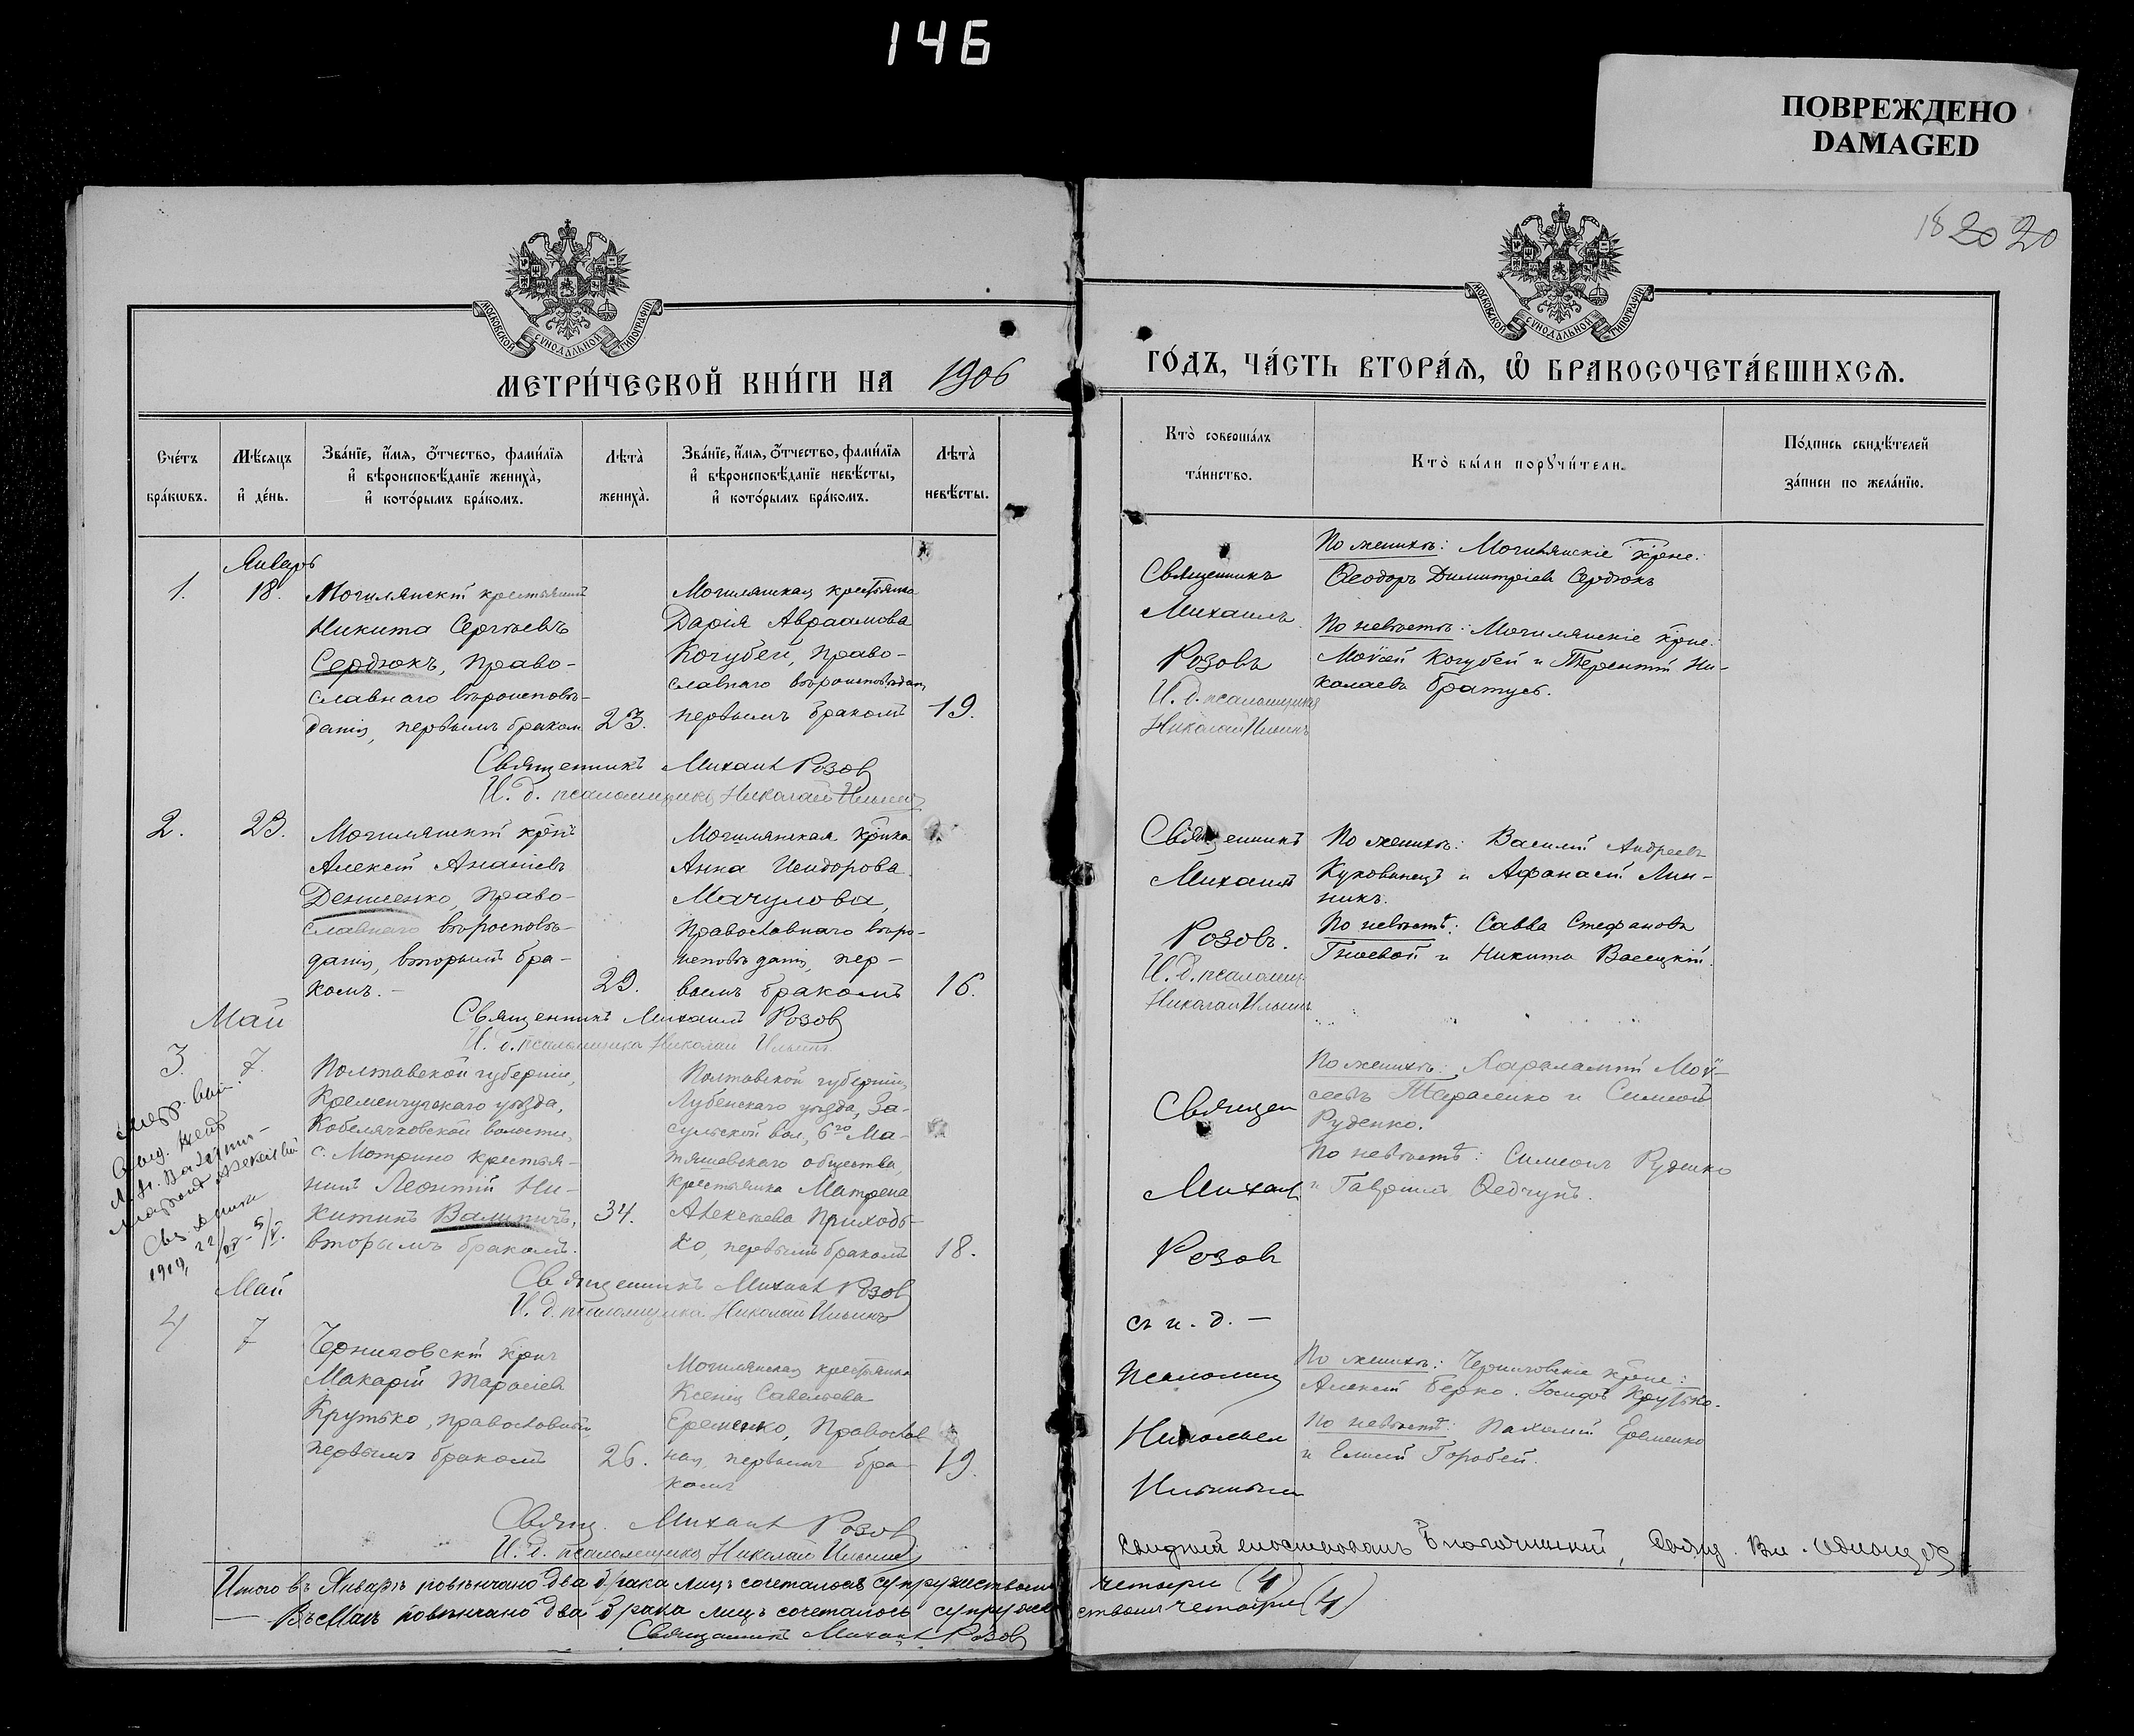 146
ПОВРЕЖДЕНО
DAMAGED
18 20 20
МОСКОВСКОЙ СѴНОДАЛЬНОЙ ТИПОГРАФІИ
МОСКОВСКОЙ СѴНОДАЛЬНОЙ ТИПОГРАФІИ
МЕТРИ́ЧЕСКОЙ КНИ́ГИ НА 1906
ГО́ДЪ, ЧА́СТЬ ВТОРА́Я, Ѽ БРАКОСОЧЕТА́ВШИХСЯ.
Сче́тъ
бра́кѡвъ.
Мѣ́сяцъ
и҆ де́нь.
Зва́нїе, и҆́мя, ѻ҆́тчество, фами́лїя
и҆ вѣроисповѣ́данїе жениха̀,
и҆ кото́рымъ бра́комъ.
Лѣта̀
жениха̀.
Зва́нїе, и҆́мя, ѻ҆́тчество, фами́лїя
и҆ вѣроисповѣ́данїе невѣ́сты,
и҆ кото́рымъ бра́комъ.
Лѣта̀
невѣ́сты.
Кто̀ соверша́лъ
та́инство.
Кто̀ бы́ли порꙋчи́тели.
По́дпись свидѣ́телей
за́писи по жела́нїю.
Январь
1.
18.
Могилянскій крестьянинъ
Никита Сергѣевъ
Сердюкъ, право-
славнаго вѣроисповѣ-
данія, первымъ браком
23.
Могилянская крестьянка
Дарія Авраамова
Кочубей, право-
славнаго вѣроисповѣдан,
первымъ бракомъ
19.
Священникъ
Михаилъ
Розовъ
И. д. псаломщика
Николай Ильинъ
По женихѣ: Могилянскіе крне:
Ѳеодоръ Димитріевъ Сердюкъ
По невѣстѣ: Могилянскіе крне:
Моѵсей Кочубей и Терентій Ни-
колаевъ Братусь.
Священникъ Михаил Розов
И. д. псаломщика Николай Ильинъ
2.
23.
Могилянскій крнъ
Алексій Ананіевъ
Денисенко, право-
славнаго вѣроисповѣ-
данія, вторымъ бра-
комъ.-
29.
Могилянская крнка
Анна Исидорова
Мачулова,
православнаго вѣро-
исповѣданія, пер-
вымъ бракомъ
16.
Священникъ
Михаилъ
Розовъ.
И. д. псаломщ.
Николай Ильинъ
По женихѣ: Василій Андреевъ
Куковинецъ и Афанасій Лин-
никъ.
По невѣстѣ: Савва Стефановъ
Гноевой и Никита Васецкій.
Священникъ Михаилъ Розов
И. д. псаломщика Николай Ильинъ
Май
3.
7.
Полтавской губерніи,
Кременчугскаго уѣзда,
Кобелячковской волости,
с. Мотрино крестья-
нинъ Леонтій Ни-
китинъ Валипичъ,
вторымъ бракомъ.
34.
Полтавской губерніи,
Лубенскаго уѣзда, За-
сульской вол, 6го Ма-
тяшевскаго общества,
крестьянка Матрена
Алексѣева Приходь-
ко, первымъ бракомъ
18.
Священ
Михаил
Розов
съ и. д. —
псаломщ
Николаем
Ильиным
По женихѣ: Харалампій Моѵ-
сеевъ Тарасенко и Симеон
Руденко.
По невѣстѣ: Симеонъ Руденко
и Гавріилъ Ѳедчунъ.
Священникъ Михаил Розов
И. д. псаломщика Николай Ильинъ
Май
4
7
Черниговскій крнъ
Макарій Тарасіев
Крутько, православный
первымъ бракомъ
26.
Могилянская крестьянка
Ксенія Савельева
Еременко, Православ
ная, первымъ бра-
комъ
19.
По женихѣ: Черниговскіе крне:
Алексій Берко. Іосифъ Крутько.
По невѣстѣ: Пахомій Еременко
и Елисей Горобей.
Свящ. Михаил Розов
И. д. псаломщика Николай Ильинъ
Итого въ Январѣ повѣнчано два брака лицъ сочеталось супружествомъ четыри (4)
— Въ Маѣ повѣнчано два брака лицъ сочеталось супружествомъ четыри (4)
Священникъ Михаил Розов